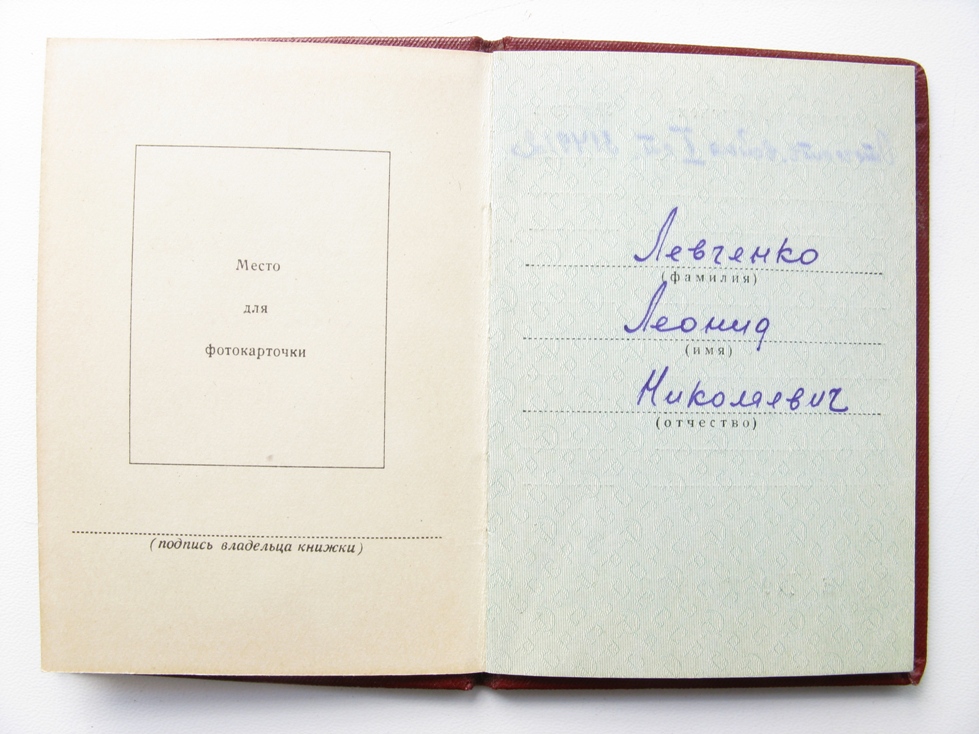 Место
для
фотокарточки
(подпись владельца книжки)
Левченко
(фамилия)
Леонид
(имя)
Николаевич
(отчество)